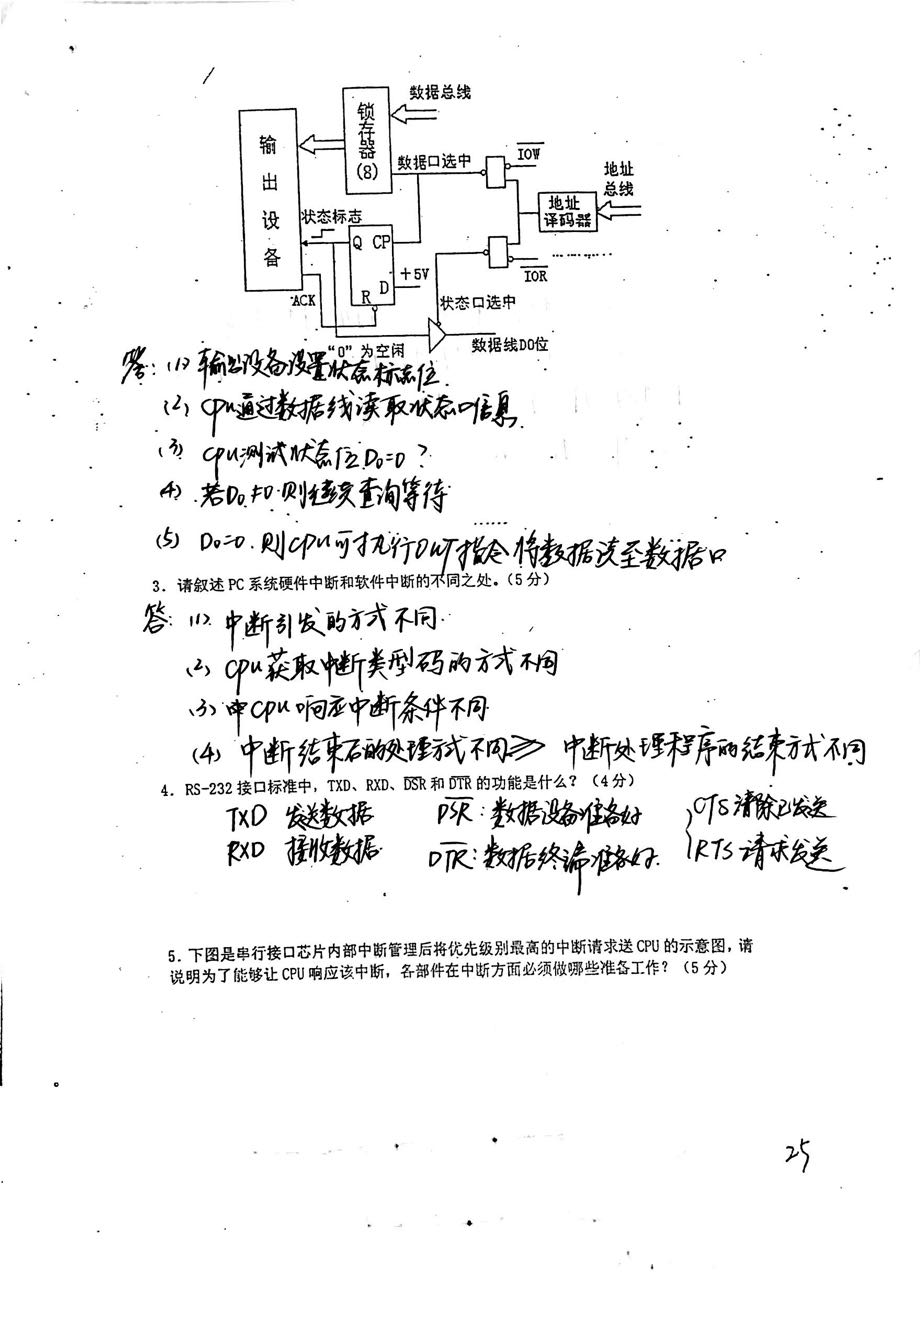 数据总线
锁存器(8)
输出设备
数据口选中
IOW
地址总线
地址译码器
状态标志
Q CP
+5V
D
R
IOR
ACK
状态口选中
"0"为空闲
数据线D0位
答:(1) 输出设备设置状态标志位.
(2) CPU通过数据线读取状态口信息.
(3) CPU测试状态位D0=0?
(4) 若D0≠0.则继续查询等待
(5) D0=0.则CPU可执行OUT指令将数据送至数据口
3. 请叙述PC系统硬件中断和软件中断的不同之处。(5分)
答:(1) 中断引发的方式不同.
(2) CPU获取中断类型码的方式不同
(3) CPU响应中断条件不同.
(4) 中断结束后的处理方式不同⇒ 中断处理程序的结束方式不同
4. RS-232接口标准中,TXD、RXD、DSR和DTR的功能是什么?(4分)
TXD 发送数据 DSR:数据设备准备好 CTS清除已发送
RXD 接收数据. DTR:数据终端准备好. RTS请求发送
5. 下图是串行接口芯片内部中断管理后将优先级别最高的中断请求送CPU的示意图,请
说明为了能够让CPU响应该中断,各部件在中断方面必须做哪些准备工作?(5分)
25